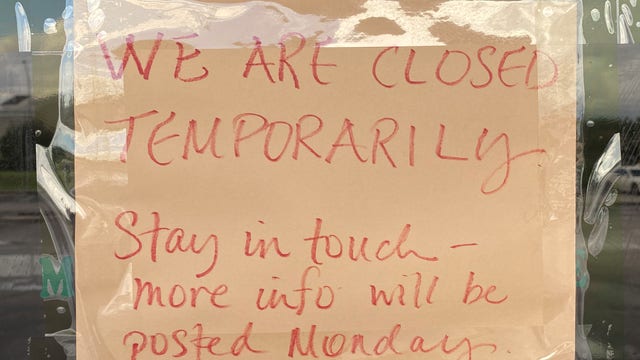 WE ARE CLOSED
TEMPORARILY.
Stay in touch -
more info will be
posted Monday.